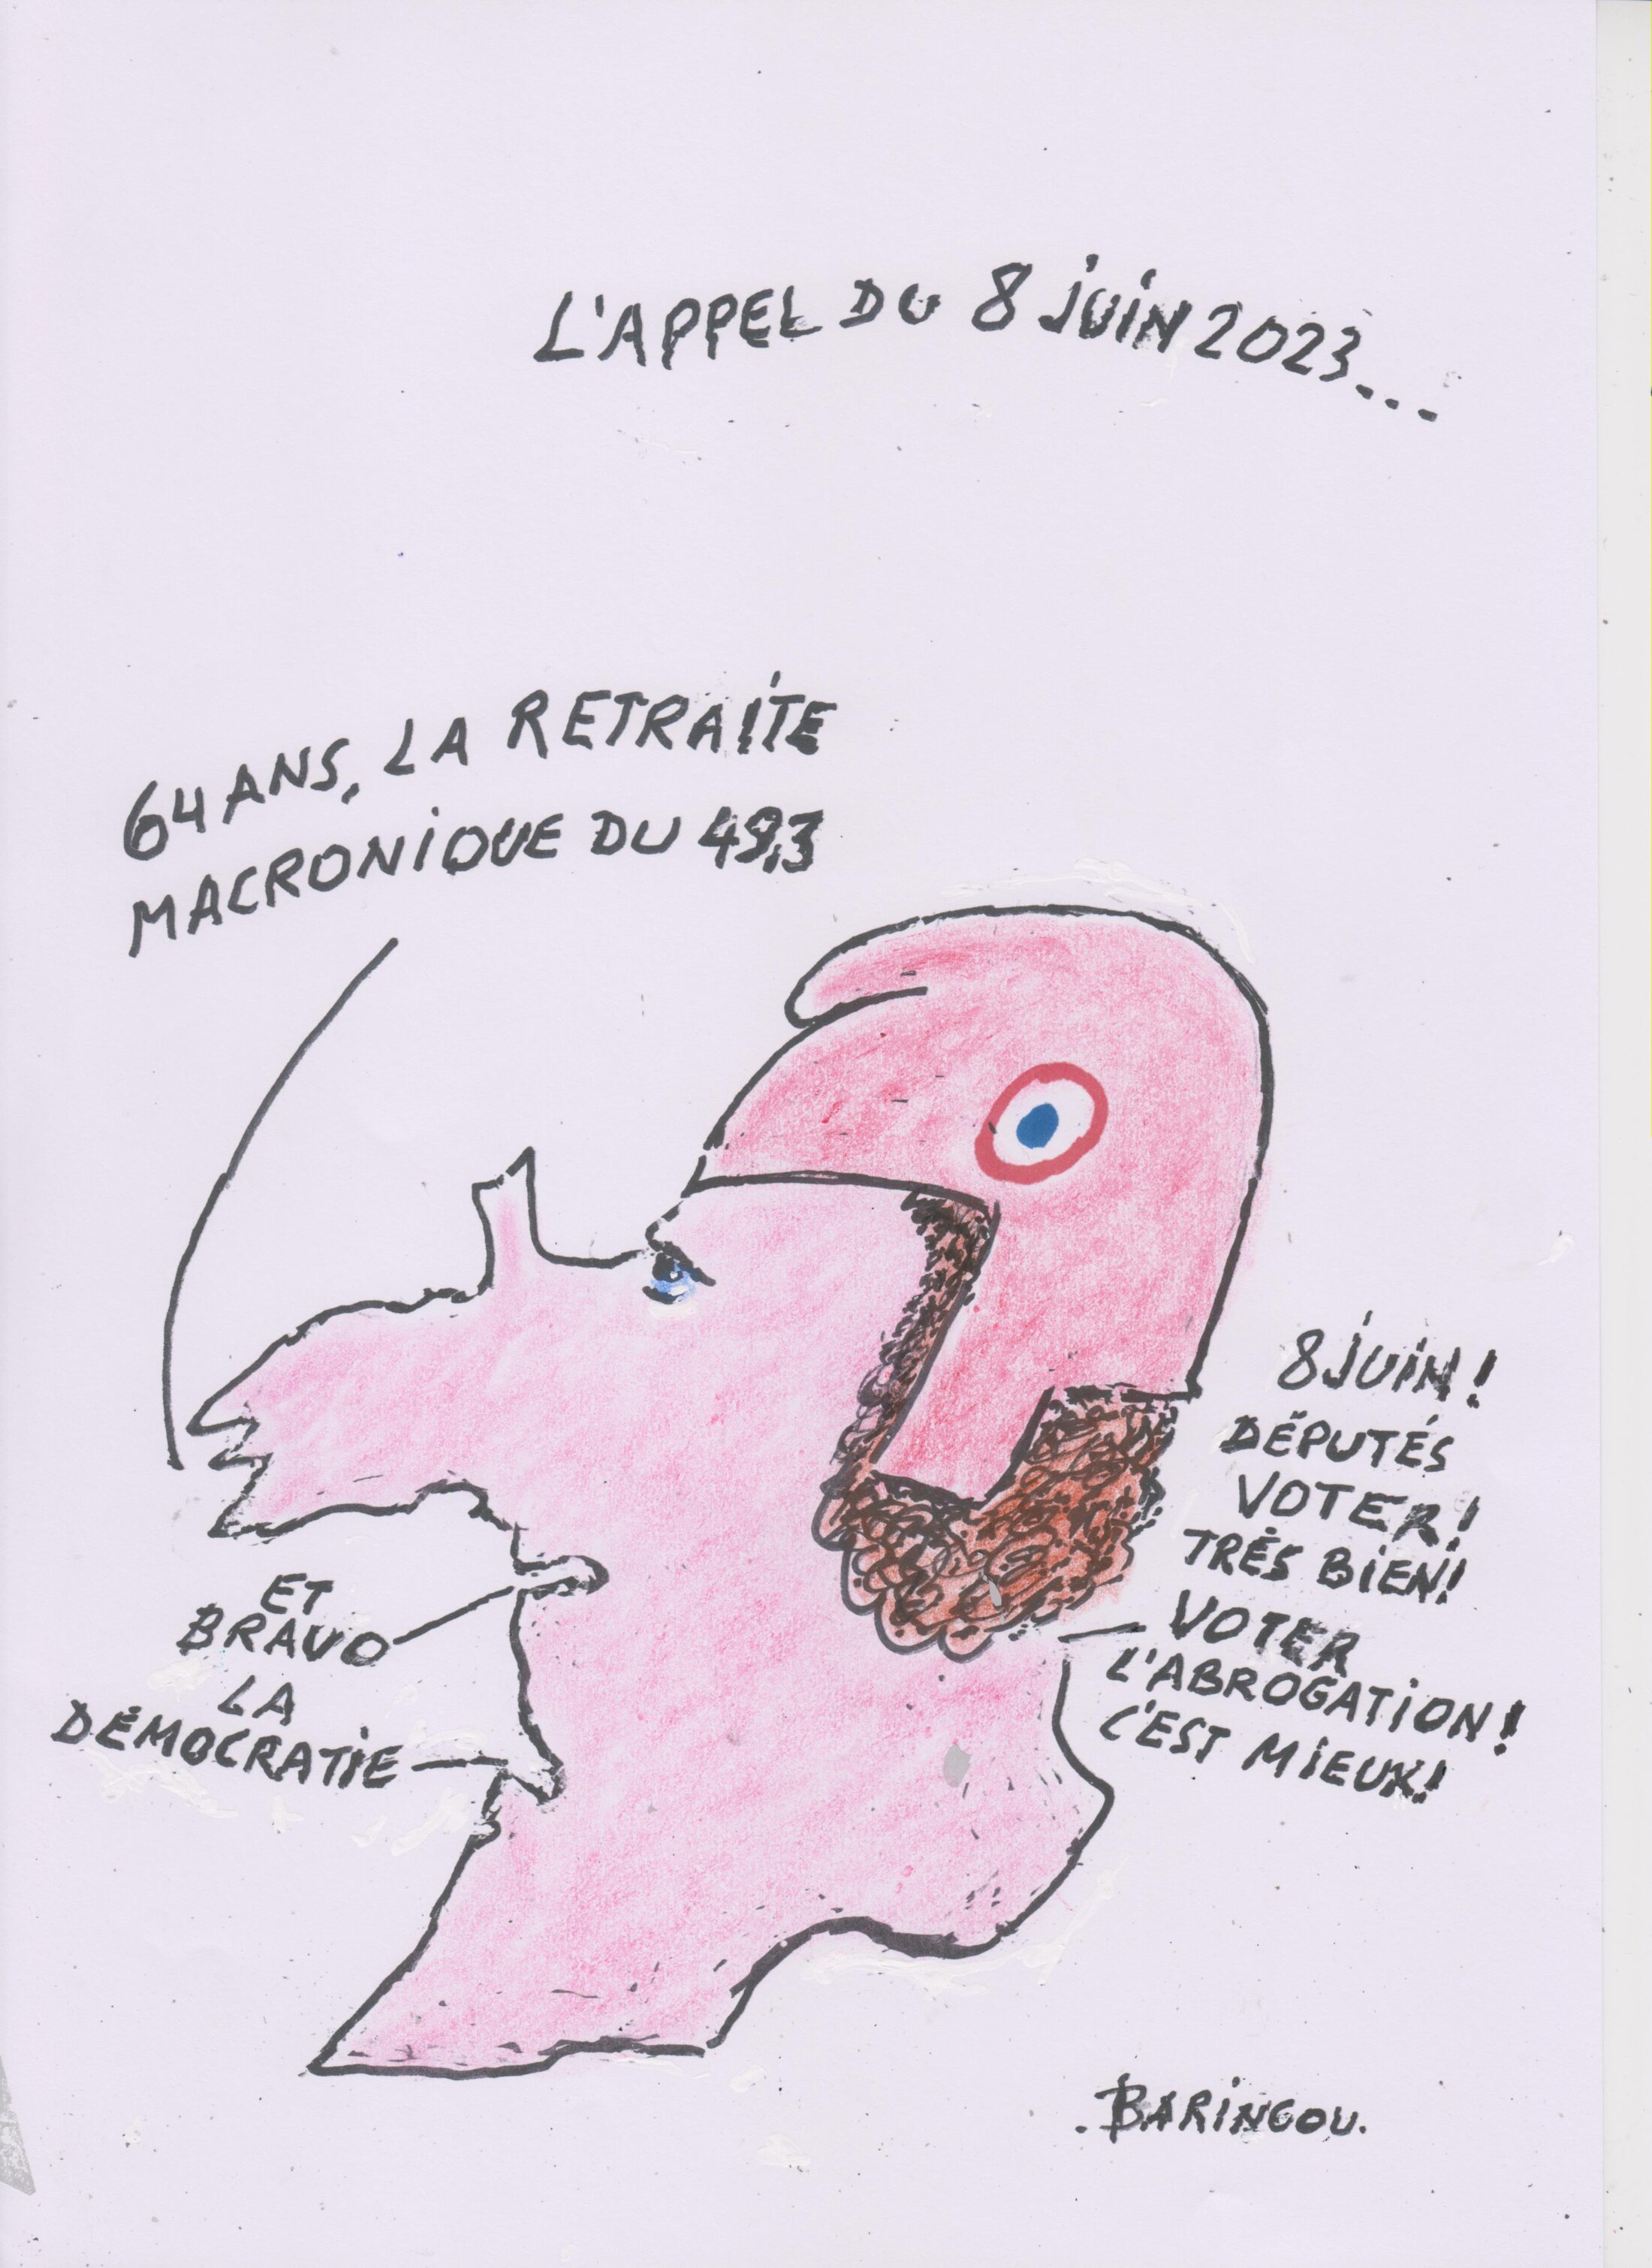 L'APPEL DU 8 JUIN 2023...
64 ANS, LA RETRAITE
MACRONIQUE DU 49.3
8 JUIN !
DÉPUTÉS
VOTER !
TRÈS BIEN !
VOTER
L'ABROGATION !
C'EST MIEUX !
ET
BRAVO
LA
DÉMOCRATIE
.BARINGOU.